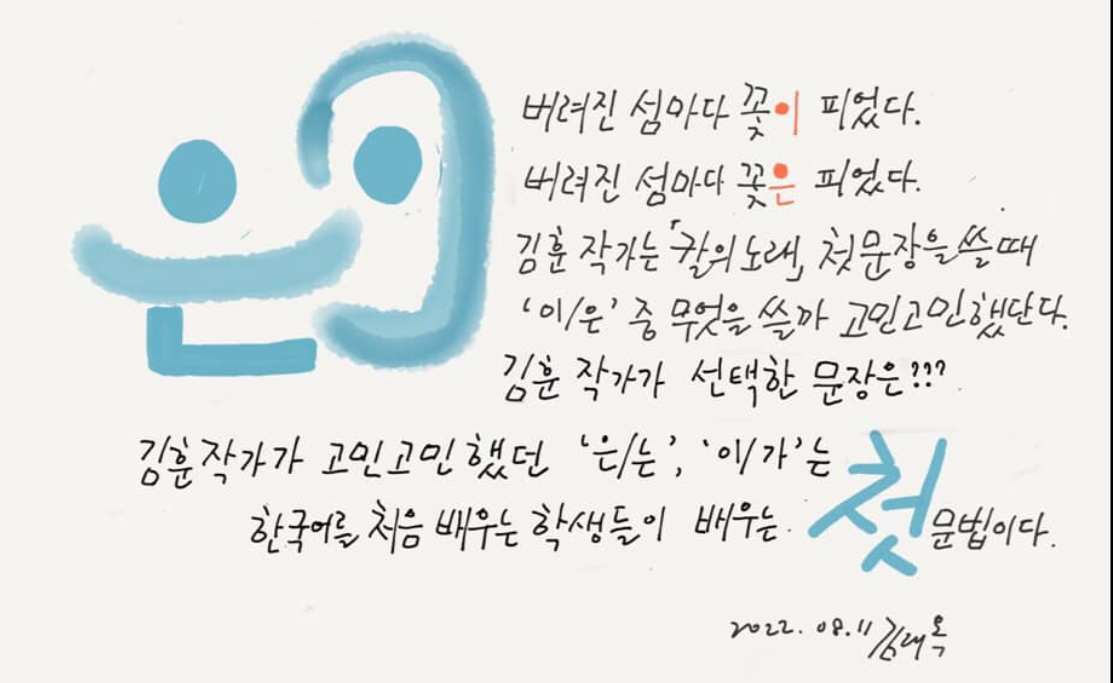 은
이
버려진 섬마다 꽃이 피었다.
버려진 섬마다 꽃은 피었다.
김훈 작가는 「칼의 노래」 첫 문장을 쓸 때
'이/은' 중 무엇을 쓸까 고민고민했단다.
김훈 작가가 선택한 문장은???
김훈작가가 고민고민했던 '은/는', '이/가'는 첫
한국어를 처음 배우는 학생들이 배우는 문법이다.
2022. 08. 11 김래옥